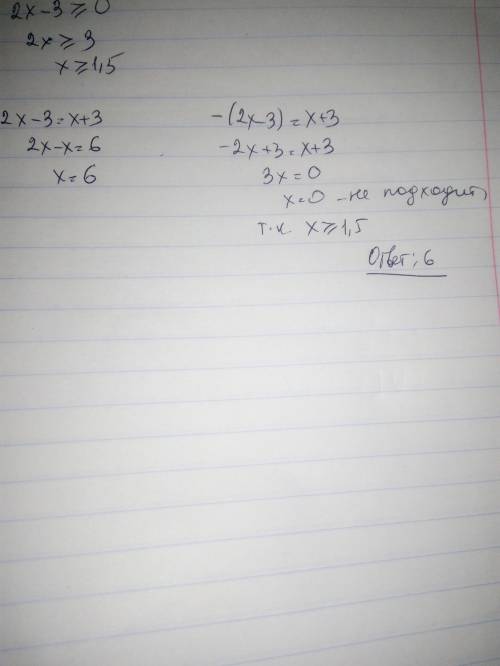 2x-3≥0
2x≥3
x≥1,5
2x-3=x+3
2x-x=6
x=6
-(2x-3)=x+3
-2x+3=x+3
3x=0
x=0 - не подходит,
т.к. x≥1,5
Ответ: 6